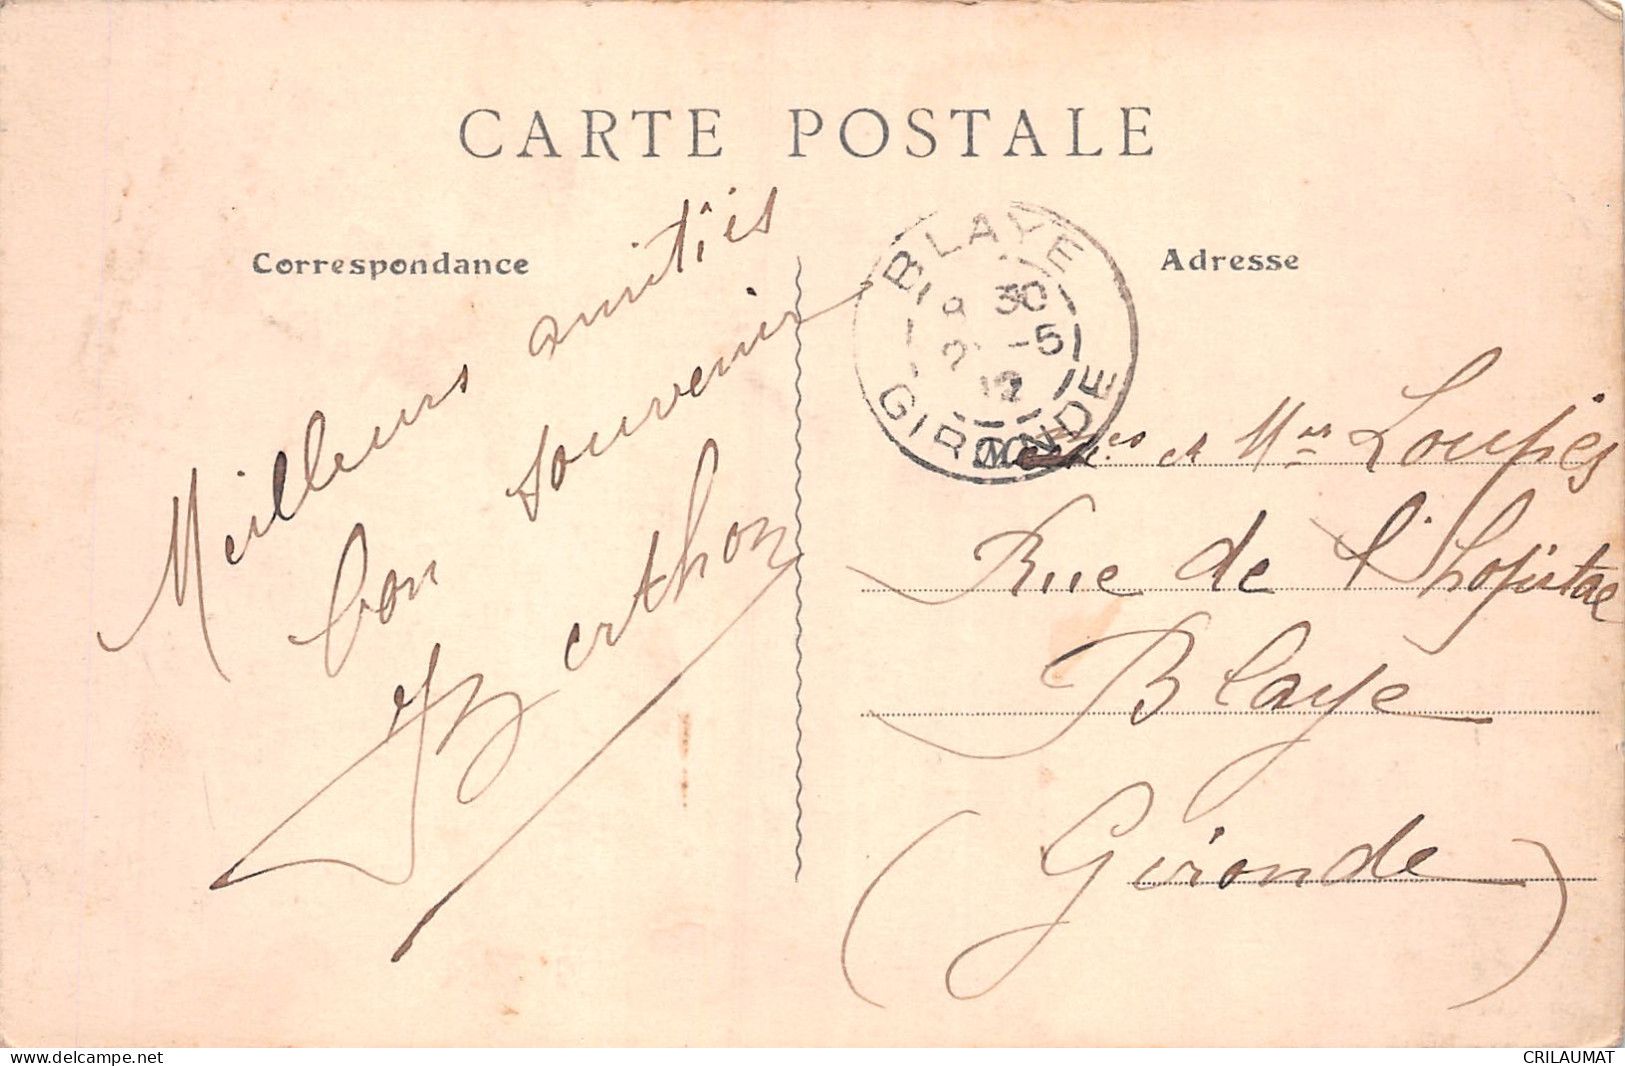 CARTE POSTALE
Correspondance
Adresse
Meilleurs amitiés
bon souvenir
Berthon
BLAYE
30
-5
12
GIRONDE
et Mrs Loupies
Rue de l'hopital
Blaye
(Gironde)
delcampe.net
CRILAUMAT